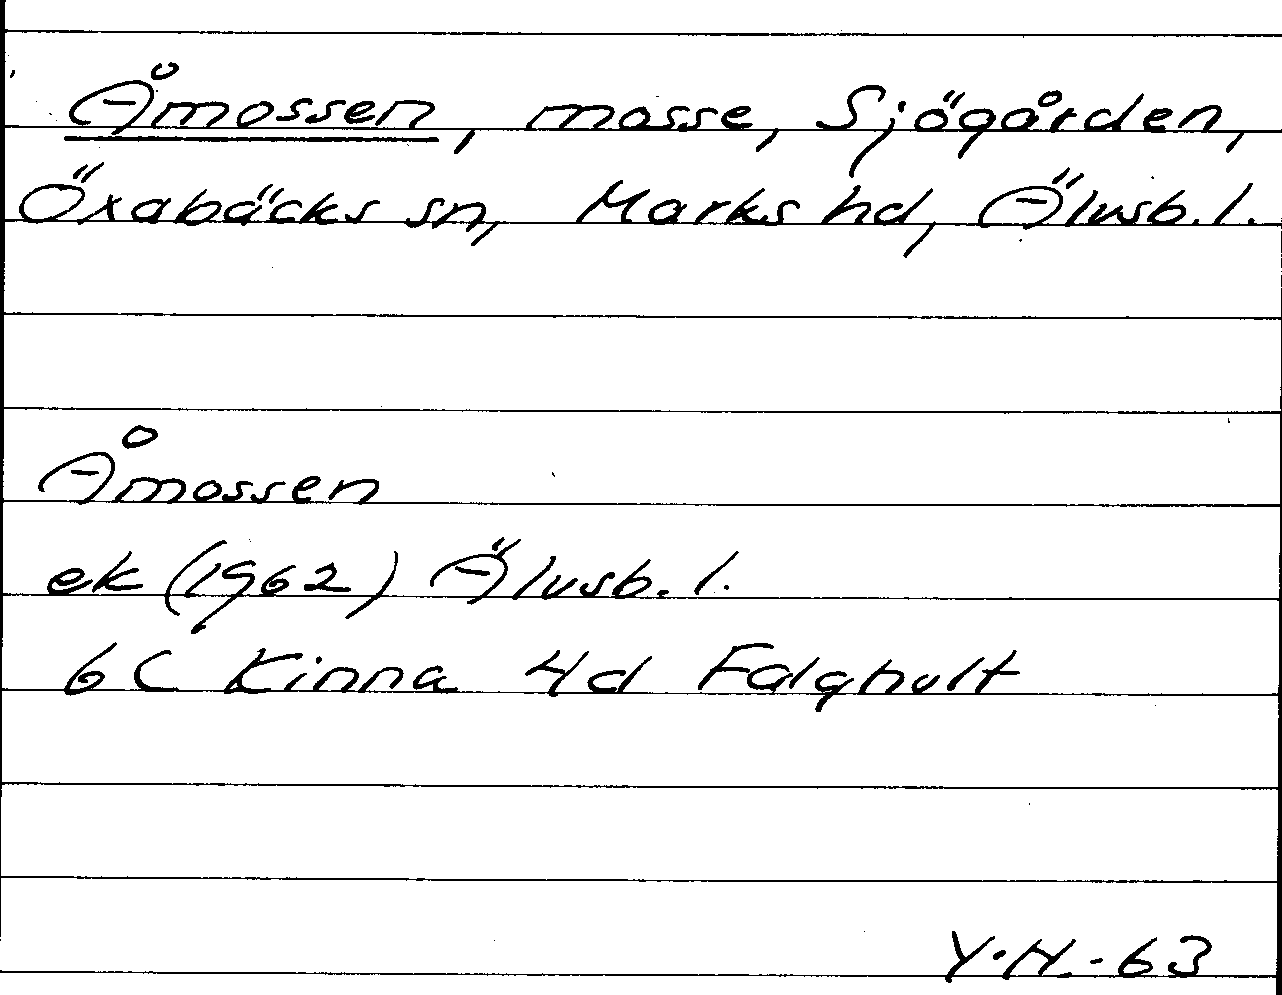 Åmossen, mosse, Sjögården,
Öxabäcks sn, Marks hd, Älvsb. l.
Åmossen
ek (1962) Älvsb. l.
6 C Kinna 4d Falghult
Y.H.-63